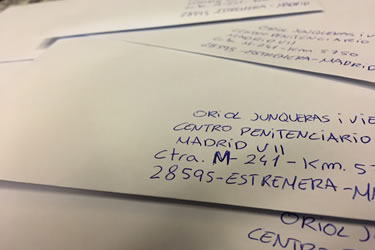 MADRID
28595 - ESTREMERA - MADRID
ORIOL JUNQUERAS i VIE
CENTRO PENITENCIARIO
MADRID VII
M-241-Km. 5750
28595-ESTREMERA-MADRID
ORIOL JUNQUERAS i VIE
CENTRO PENITENCIARIO
MADRID VII
Ctra. M-241-Km. 5
28595-ESTREMERA-MA
ORIOL J
CENTRO